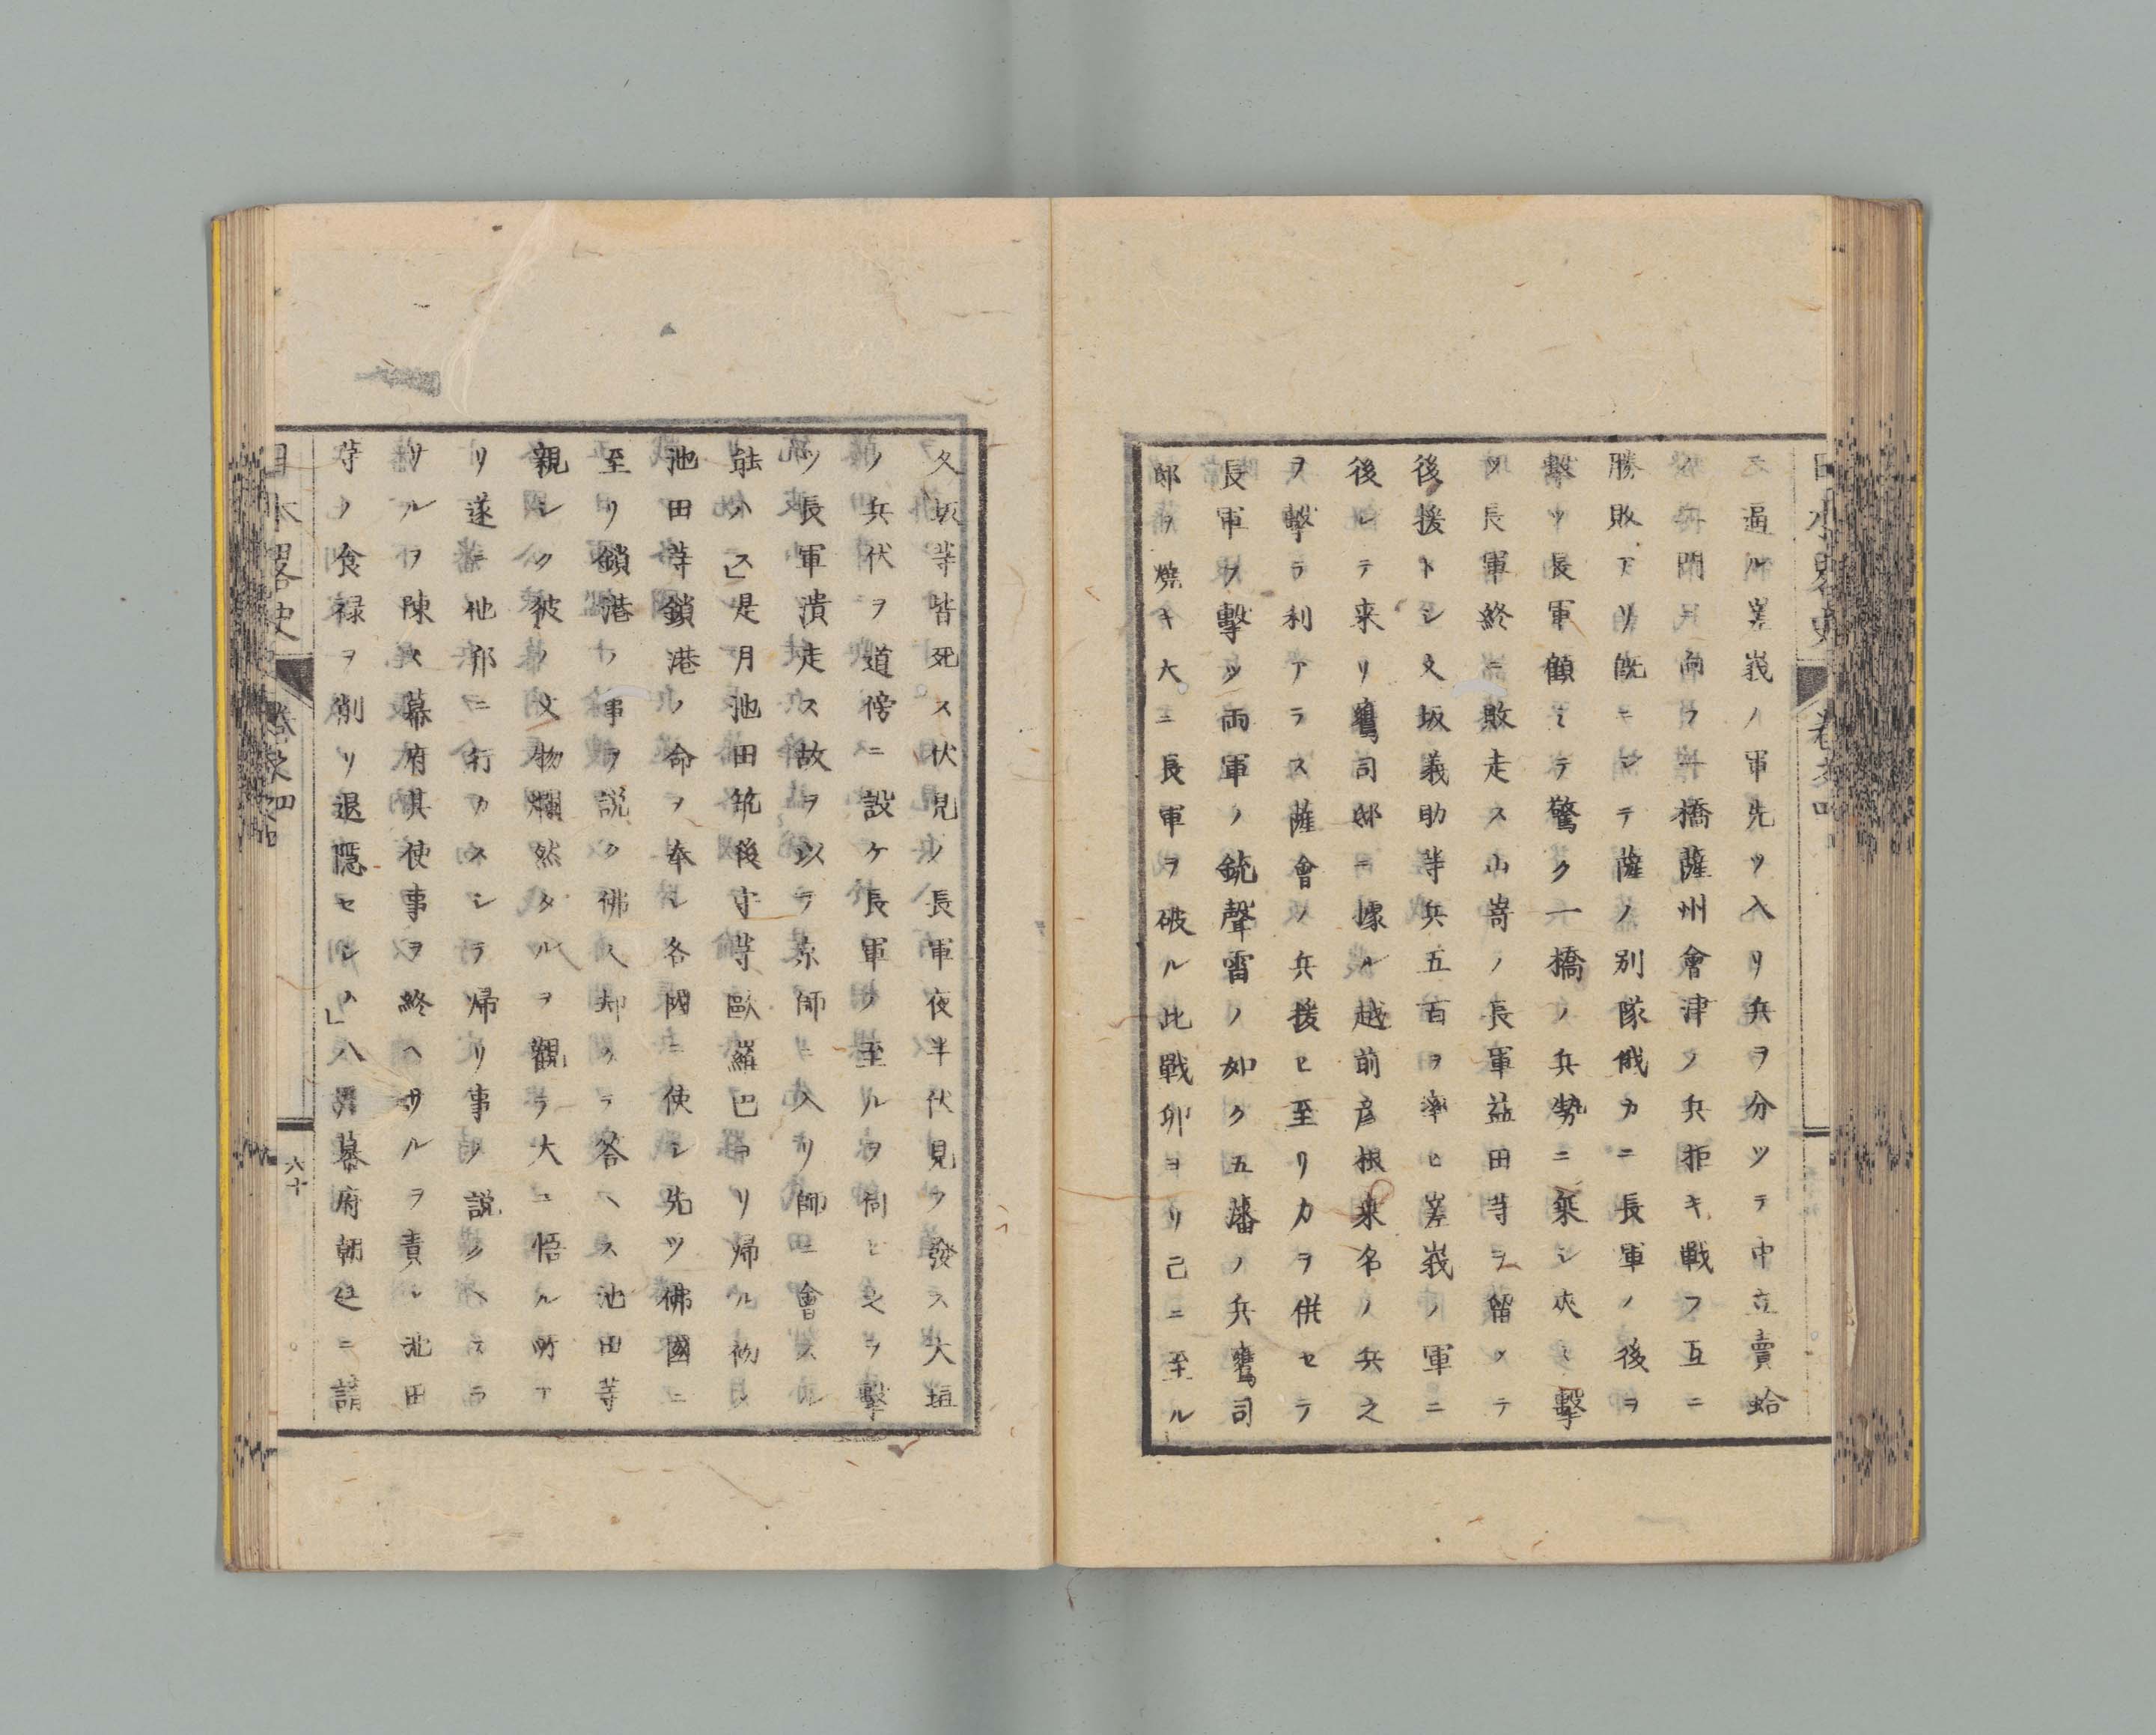 日本略史 卷之四
ニ逼ル嵯峩ノ軍先ツ入リ兵ヲ分ツテ中立賣蛤
門ニ向フ一橋薩州會津ノ兵拒キ戰フ互ニ
勝敗アリ既ニシテ薩ノ別隊俄カニ長軍ノ後ヲ
擊ツ長軍顧ミテ驚ク一橋ノ兵勢ニ乘シ夾ミ擊
ツ長軍終ニ敗走ス山嵜ノ長軍益田等ヲ留メテ
後援トシ久坂義助等兵五百ヲ率ヒ嵯峩ノ軍ニ
後レテ来リ鷹司邸ニ據ル越前彦根桑名ノ兵之
ヲ擊テ利アラス薩會ノ兵援ヒ至リ力ヲ併セテ
長軍ヲ擊ツ両軍ノ銃聲雷ノ如ク五藩ノ兵鷹司
邸ヲ燒キ大ニ長軍ヲ破ル此戰卯ヨリ己ニ至ル
久坂等皆死ス伏見ノ長軍夜半伏見ヲ發ス大垣
ノ兵伏ヲ道傍ニ設ケ長軍ノ至ルヲ伺ヒ之ヲ擊
ツ長軍潰走ス故ヲ以テ京師ニ入リ師ニ會スル
能ハス」是月池田筑後守等歐羅巴ヨリ帰ル初メ
池田等鎖港ノ命ヲ奉シ各國ニ使シ先ツ佛國ニ
至リ鎖港ノ事ヲ説ク佛人却ケテ答ヘス池田等
親シク彼ノ文物爛然タルヲ觀テ大ニ悟ル所ア
リ遂ニ他邦ニ行カスシテ帰リ事ノ説クヘカラ
サルヲ陳ス幕府其使事ヲ終ヘサルヲ責シ池田
等ノ食禄ヲ削リ退隠セシム」八月幕府朝廷ニ請
日本略史 卷之四 六十